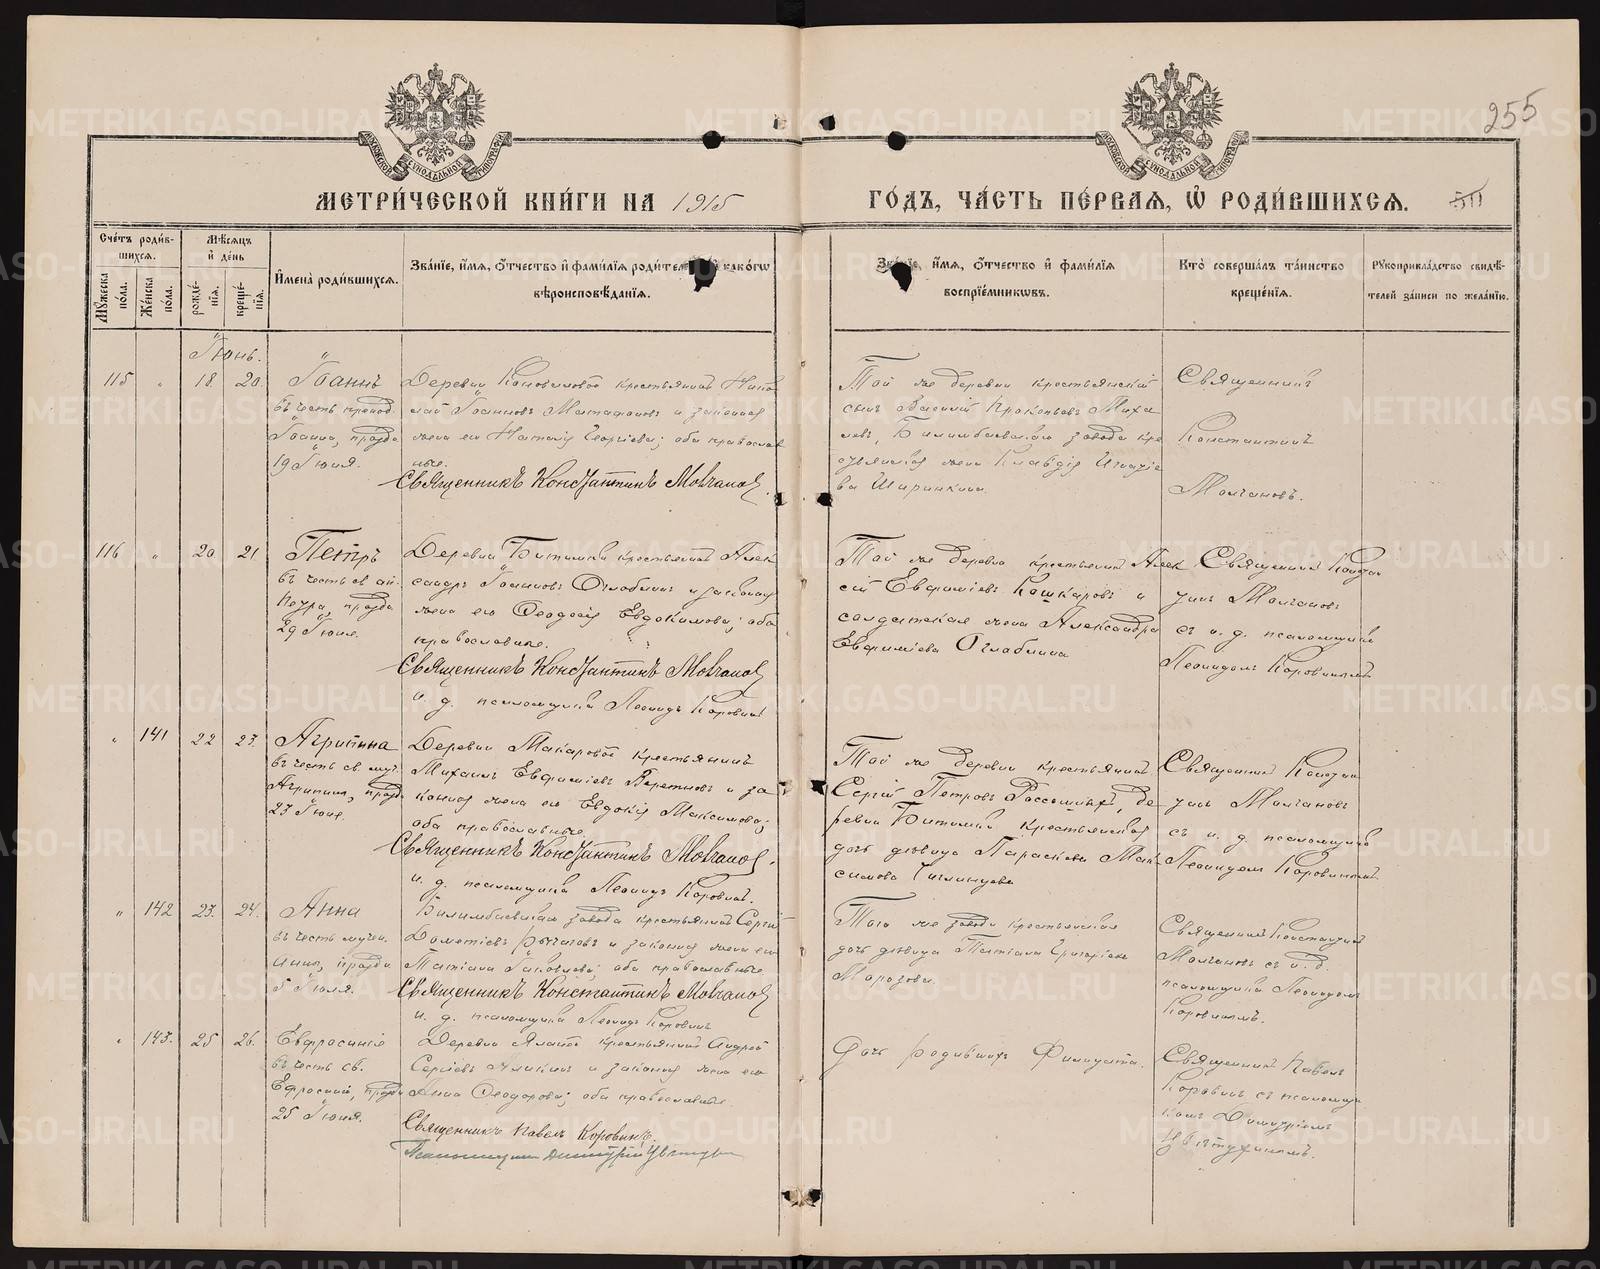 255
МЕТРИЧЕСКОЙ КНИГИ НА 1915
ГОДЪ, ЧАСТЬ ПЕРВАЯ, Ѿ РОДИВШИХСЯ.
Счетъ родив-
шихся.
Мужеска пола.
Женска пола.
Мѣсяцъ
и день
рожде-
нія.
креще-
нія.
Имена родившихся.
Званіе, имя, отчество и фамилія родителей и какогѡ
вѣроисповѣданія.
Званіе, имя, отчество и фамилія
воспріемниковъ.
Кто совершалъ таинство
крещенія.
Рукоприкладство свидѣ-
телей записи по желанію.
Іюнь.
115 " 18. 20.
Іоаннъ
въ честь препод.
Іоанна, праздн.
19 Іюня.
Деревни Коноваловой крестьянинъ Нико
лай Іоанновъ и законная
жена его Наталія Георгіева; оба православ
ные.
Священникъ Константинъ Молчановъ.
Той же деревни крестьянскій
сынъ Василій Прокопьевъ Миха
левъ, Билимбаевскаго завода кре
стьянская жена Клавдія Игнатіе
ва Ширинкина.
Священникъ
Константинъ
Молчановъ.
116 " 20 21
Петръ
въ честь св. ап.
Петра, праздн.
29 Іюня.
Деревни Битимки крестьянинъ Алек
сандръ Іоанновъ Оглоблинъ и законная
жена его Ѳеодосія Евдокимова; оба
православные.
Священникъ Константинъ Молчановъ
и. д. псаломщика Леонидъ Коровинъ
Той же деревни крестьянинъ Алек
сій Евфиміевъ Кошкаровъ и
солдатская жена Александра
Евфиміева Оглоблина
Священникъ Констан
тинъ Молчановъ
съ и. д. псаломщика
Леонидомъ Коровинымъ
" 141 22 23.
Агрипина
въ честь св. муч.
Агрипины, празд.
23 Іюня.
Деревни Макаровой крестьянинъ
Михаилъ Евфиміевъ и за
конная жена его Евдокія Максимова;
оба православные.
Священникъ Константинъ Молчановъ.
и. д. псаломщика Леонидъ Коровинъ.
Той же деревни крестьянинъ
Сергій Петровъ де
ревни Битимки крестьянская
дочь девица Параскева Мак
симова
Священникъ Констан
тинъ Молчановъ
съ и. д. псаломщика
Леонидомъ Коровинымъ.
" 142 23. 24.
Анна
въ честь мучен.
Анны, праздн.
5 Іюля.
Билимбаевскаго завода крестьянинъ Сергій
Дометіевъ и законная жена его
Татіана Іаковлева; оба православные.
Священникъ Константинъ Молчановъ
и. д. псаломщика Леонидъ Коровинъ
Того же завода крестьянская
дочь девица Татіана Григоріева
Морозова.
Священникъ Константинъ
Молчановъ съ и. д.
псаломщика Леонидомъ
Коровинымъ.
" 143. 25 26.
Евфросинія
въ честь св.
Ефросиніи, праздн.
25 Іюня.
Деревни крестьянинъ Андрей
Сергіевъ и законная жена его
Анна Ѳеодорова; оба православные.
Священникъ Павелъ Коровинъ.
Псаломщикъ Димитрій
Дочь родившихъ
Священникъ Павелъ
Коровинъ съ псаломщи
комъ Димитріемъ